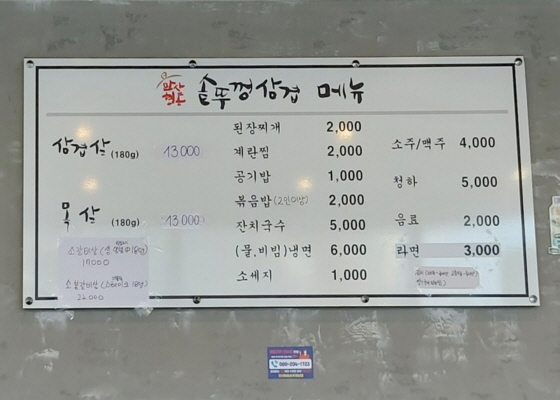 솥뚜껑삼겹 메뉴
삼겹살 (180g) 13000
목살 (180g) 13000
소갈비살
17000
22,000
된장찌개 2,000
계란찜 2,000
공기밥 1,000
볶음밥(2인이상) 2,000
잔치국수 5,000
(물,비빔)냉면 6,000
소세지 1,000
소주/맥주 4,000
청하 5,000
음료 2,000
라면 3,000